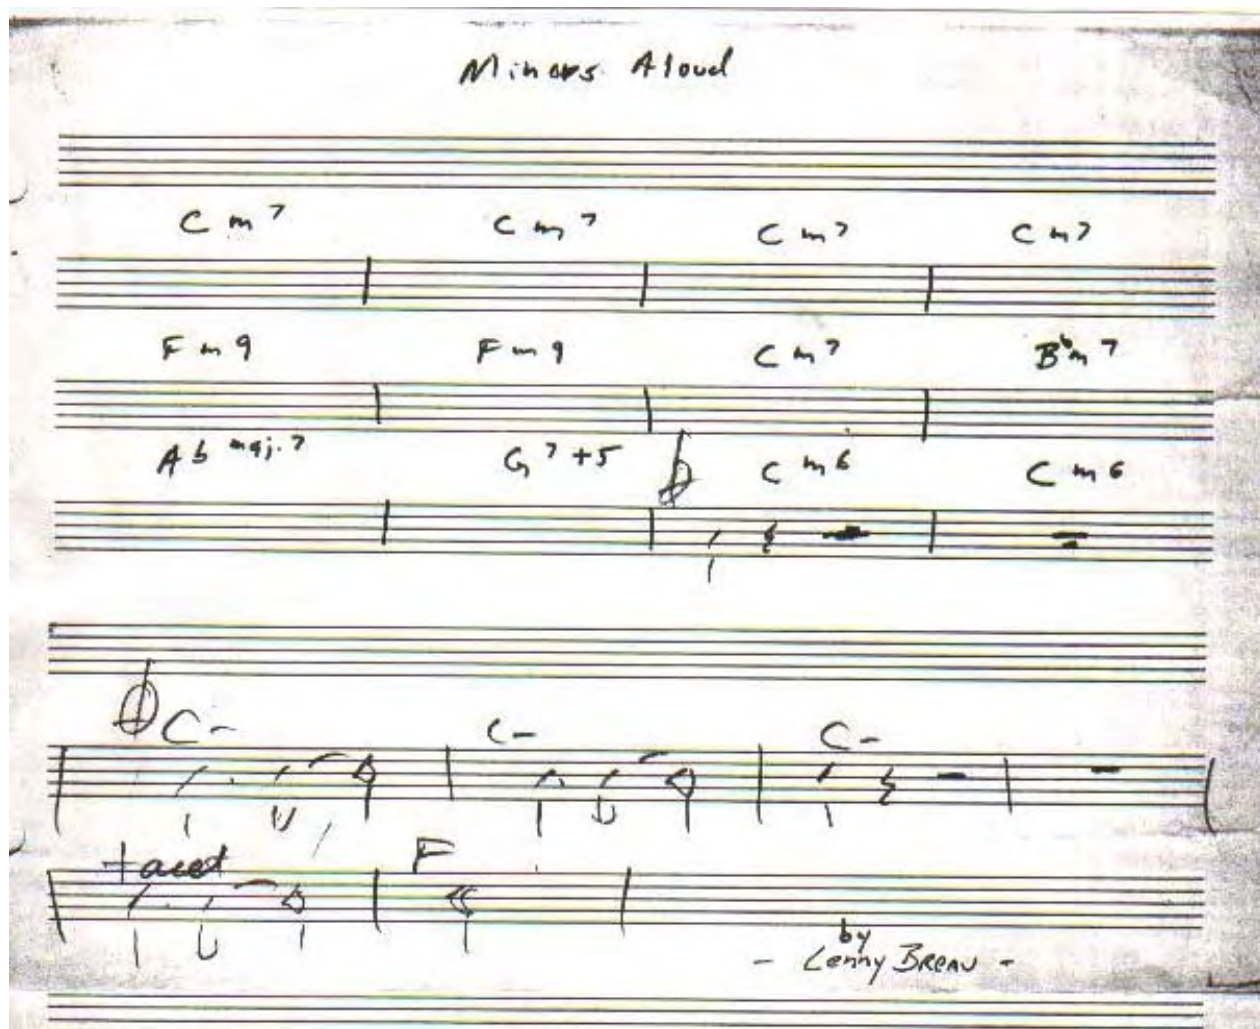 Minors Aloud
C m 7 C m 7 C m 7 C m 7
F m 9 F m 9 C m 7 B♭m 7
Ab maj. 7 G 7 +5 C m 6 C m 6
C- C- C-
tacet F
by
- Lenny BREAU -